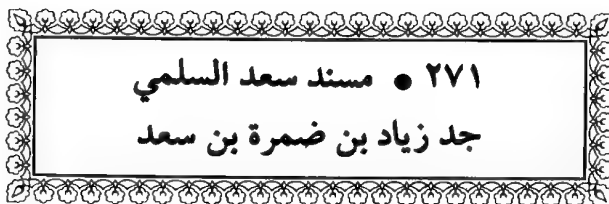 ٢٧١ ● مسند سعد السلمي
جد زياد بن ضمرة بن سعد